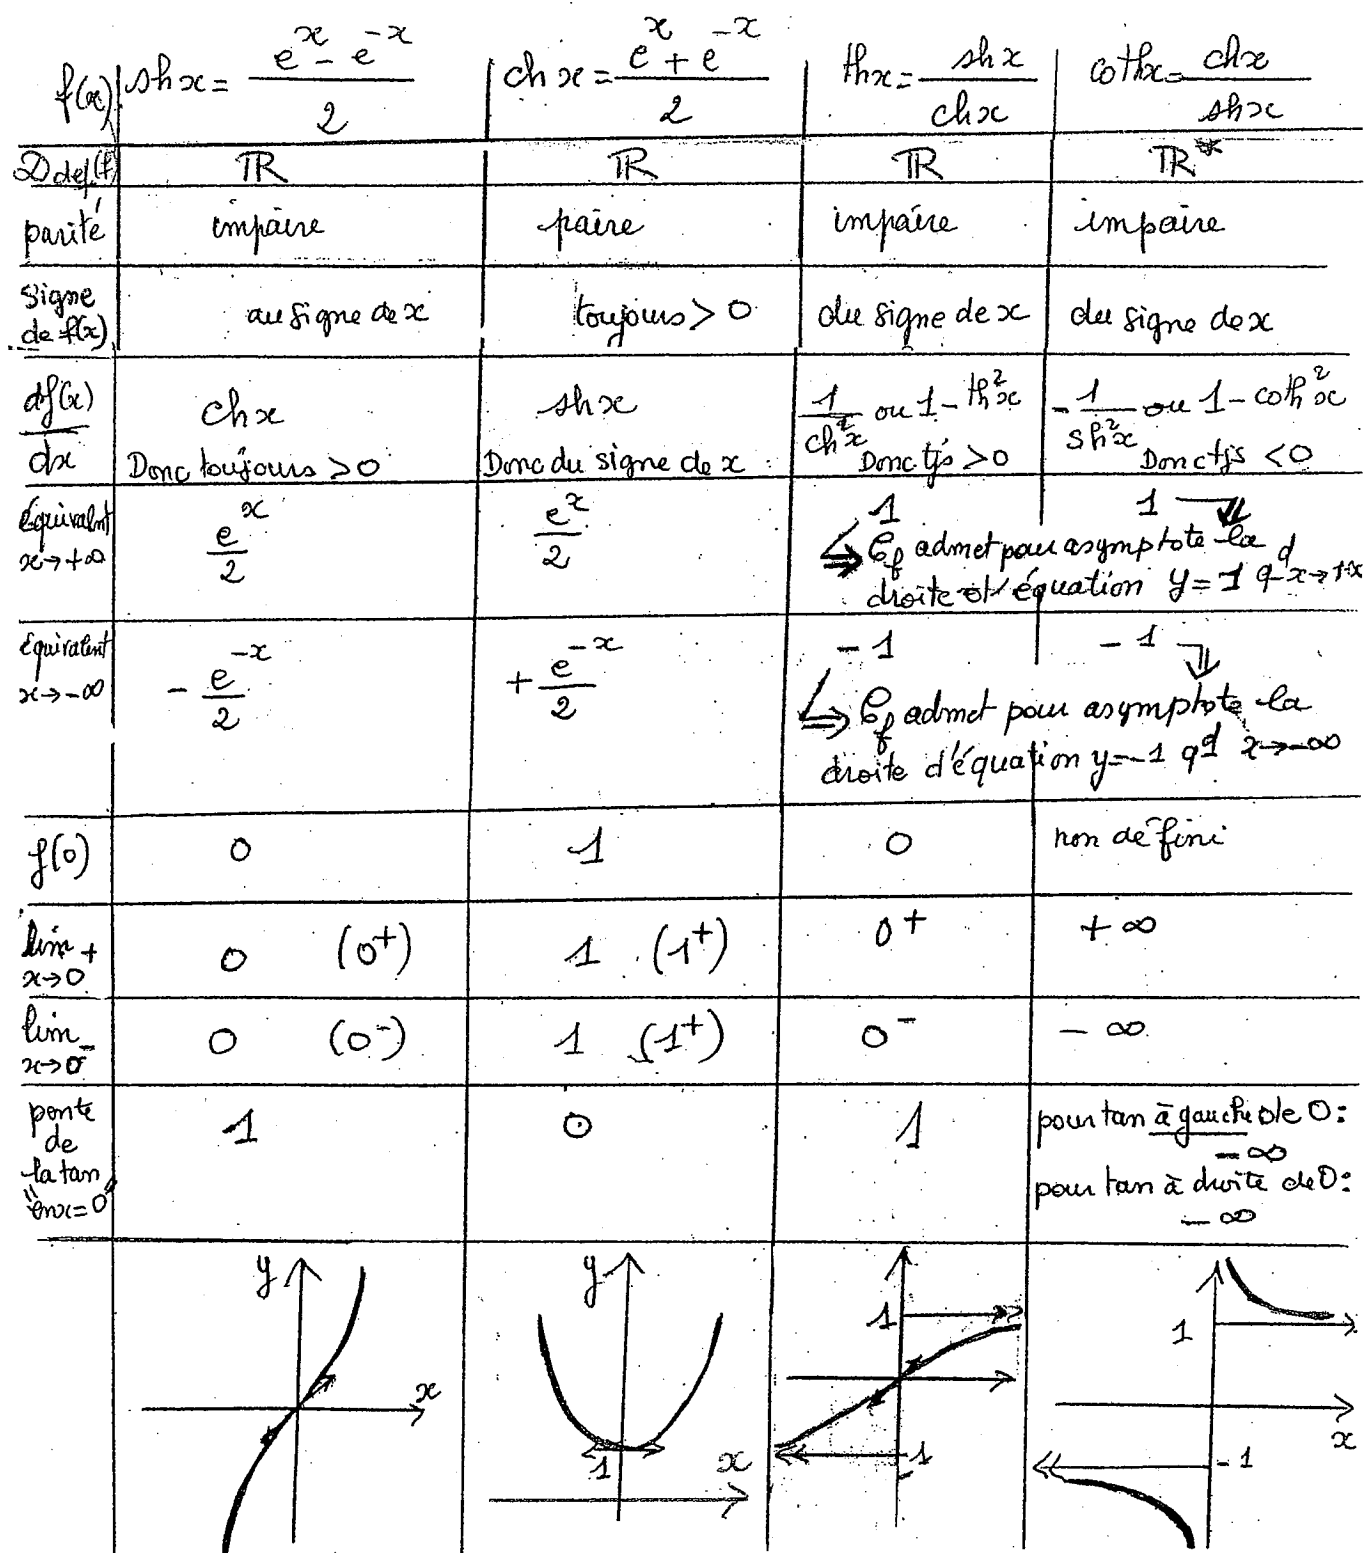 f(x) | sh x = (e^x - e^-x)/2 | ch x = (e^x + e^-x)/2 | th x = sh x/ch x | coth x = ch x/sh x
D def(f) | ℝ | ℝ | ℝ | ℝ*
parité | impaire | paire | impaire | impaire
Signe de f(x) | au signe de x | toujours > 0 | du signe de x | du signe de x
df(x)/dx | ch x | sh x | 1/ch²x ou 1 - th²x | -1/sh²x ou 1 - coth²x
Donc toujours > 0 | Donc du signe de x | Donc tjs > 0 | Donc tjs < 0
équivalent x→+∞ | e^x/2 | e^x/2 | 1 | 1
⇒ 𝒞f admet pour asymptote la
droite d'équation y = 1 qd x→+∞
équivalent x→-∞ | - e^-x/2 | + e^-x/2 | -1 | -1
⇒ 𝒞f admet pour asymptote la
droite d'équation y=-1 qd x→-∞
f(0) | 0 | 1 | 0 | non défini
lim x→0+ | 0 (0+) | 1 (1+) | 0+ | +∞
lim x→0- | 0 (0-) | 1 (1+) | 0- | -∞
pente de la tan "en x=0" | 1 | 0 | 1 | pour tan à gauche de 0:
-∞
pour tan à droite de 0:
-∞
y | y
1 | 1
x | x
1 | -1 | -1 | x